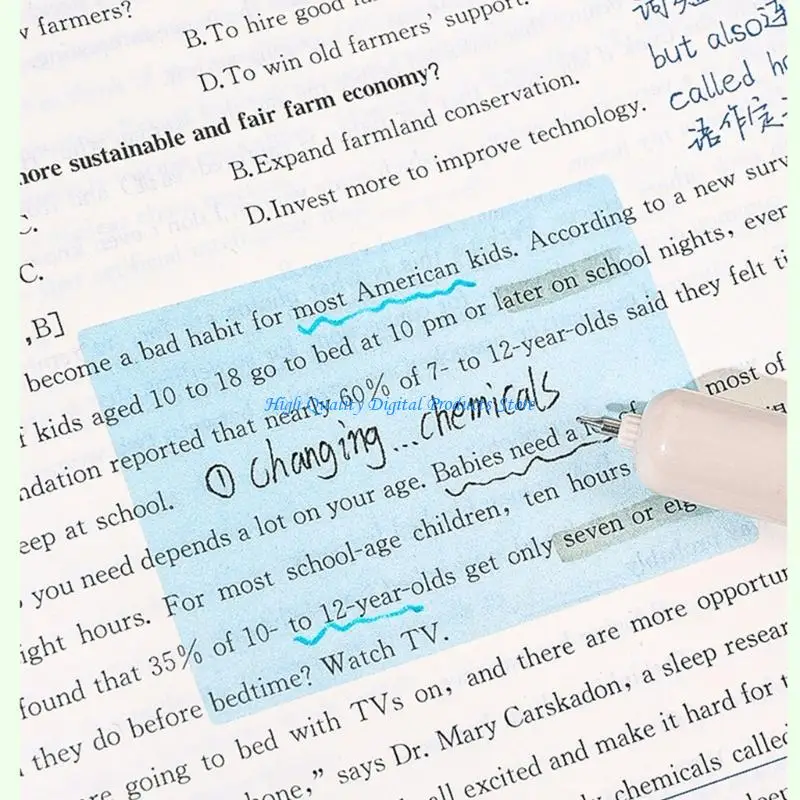 farmers?
B.To hire good
D.To win old farmers' support.
more sustainable and fair farm economy?
B.Expand farmland conservation.
D.Invest more to improve technology.
but also
called
语作定
C.
C.
,B]
become a bad habit for most American kids. According to a new
kids aged 10 to 18 go to bed at 10 pm or later on school nights,
reported that nearly 60% of 7- to 12-year-olds said they felt
High Quality Digital Products Store
① changing...chemicals
at school.
most of
you need depends a lot on your age. Babies need a lot of
hours. For most school-age children, ten hours
found that 35% of 10- to 12-year-olds get only seven or
they do before bedtime? Watch TV.
going to bed with TVs on, and there are more
," says Dr. Mary Carskadon, a sleep
excited and make it hard for
chemicals called